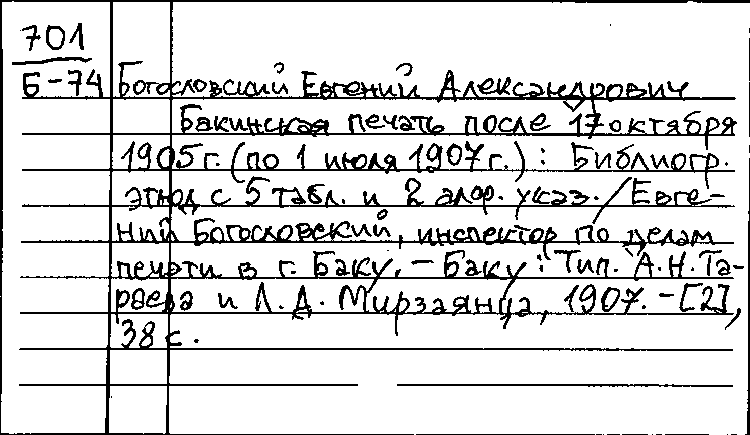 701
Б-74 Богословский Евгений Александрович
Бакинская печать после 17 октября
1905 г. (по 1 июля 1907 г.) : Библиогр.
этюд с 5 табл. и 2 алф. указ. / Евге-
ний Богословский, инспектор по делам
печати в г. Баку. – Баку : Тип. А.Н. Та-
раева и Л.Д. Мирзаянца, 1907. – [2],
38 с.